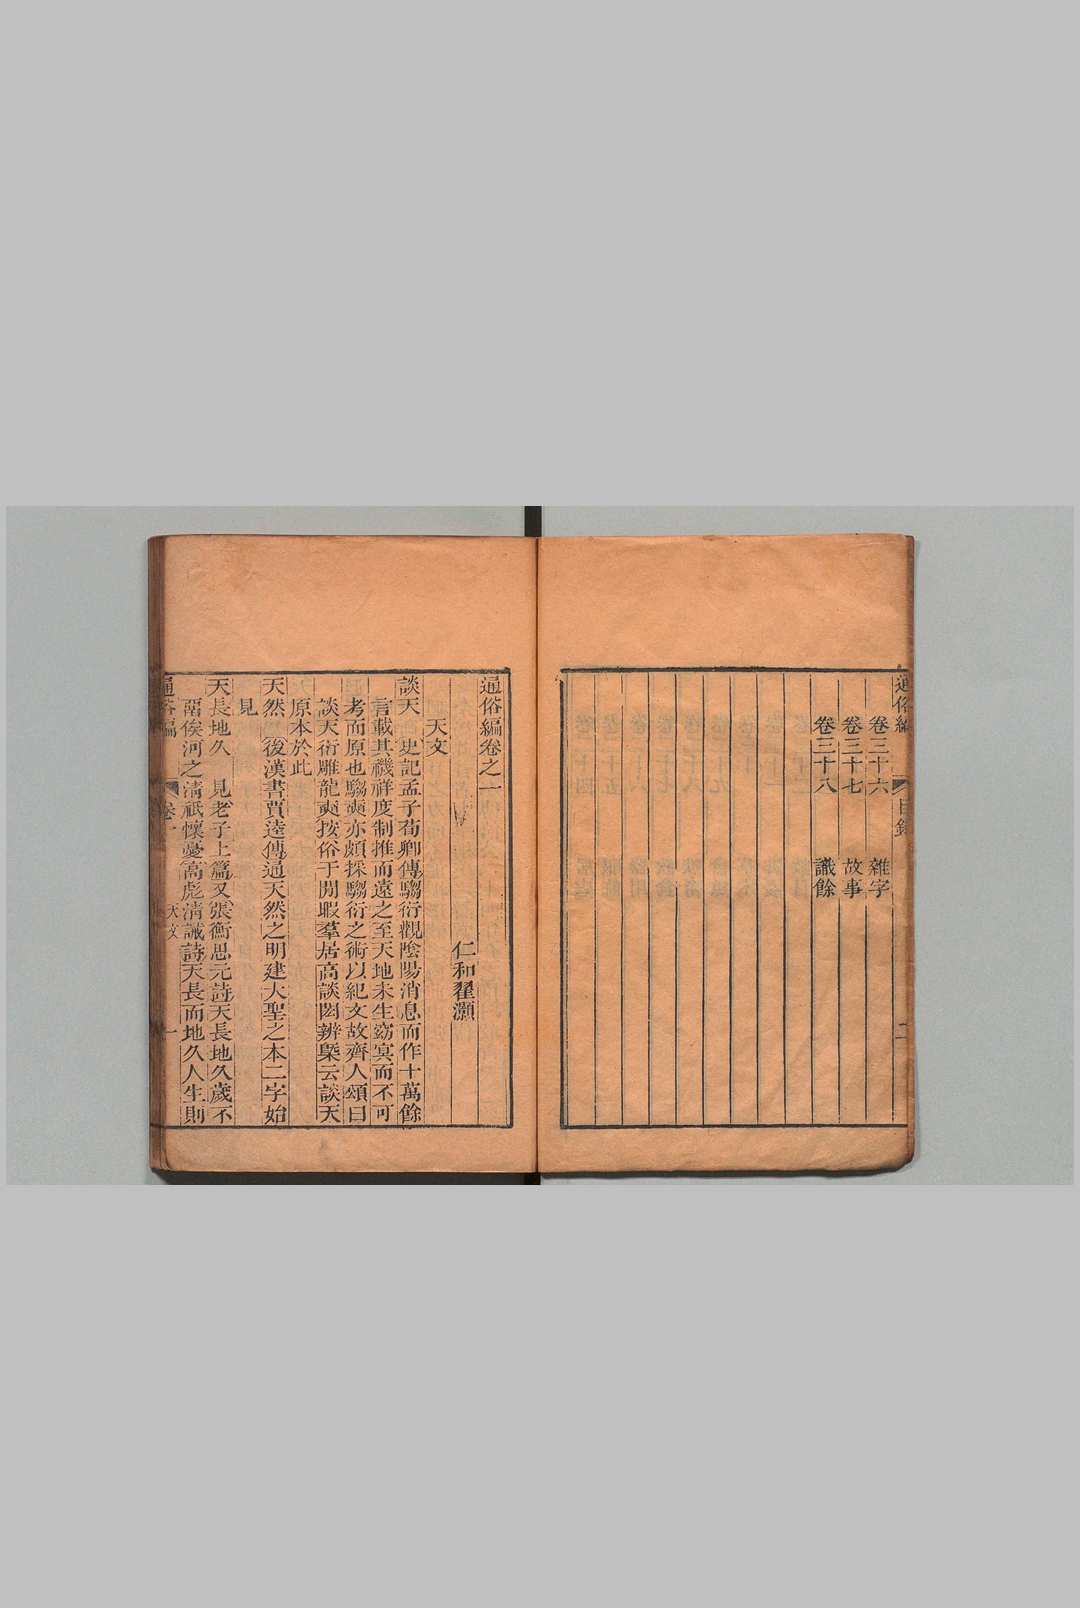 通俗編
卷三十六　雜字
卷三十七　故事
卷三十八　識餘
目錄　二
通俗編卷之一
仁和翟灝
天文
談天　史記孟子荀卿傳騶衍觀陰陽消息而作十萬餘
言載其禨祥度制推而遠之至天地未生窈冥而不可
考而原也騶奭亦頗採騶衍之術以紀文故齊人頌曰
談天衍雕龍奭按俗于閒暇羣居高談閎辨槩云談天
原本於此
天然　後漢書賈逵傳通天然之明建大聖之本二字始
見
天長地久　見老子上篇又張衡思元詩天長地久歲不
畱俟河之清祗懷憂高彪清誡詩天長而地久人生則
通俗編　卷一　天文　一